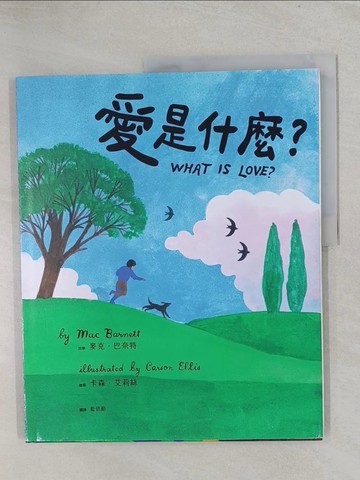 愛是什麼?
WHAT IS LOVE?
by Mac Barnett
麥克·巴奈特
illustrated by Carson Ellis
卡森 艾莉絲